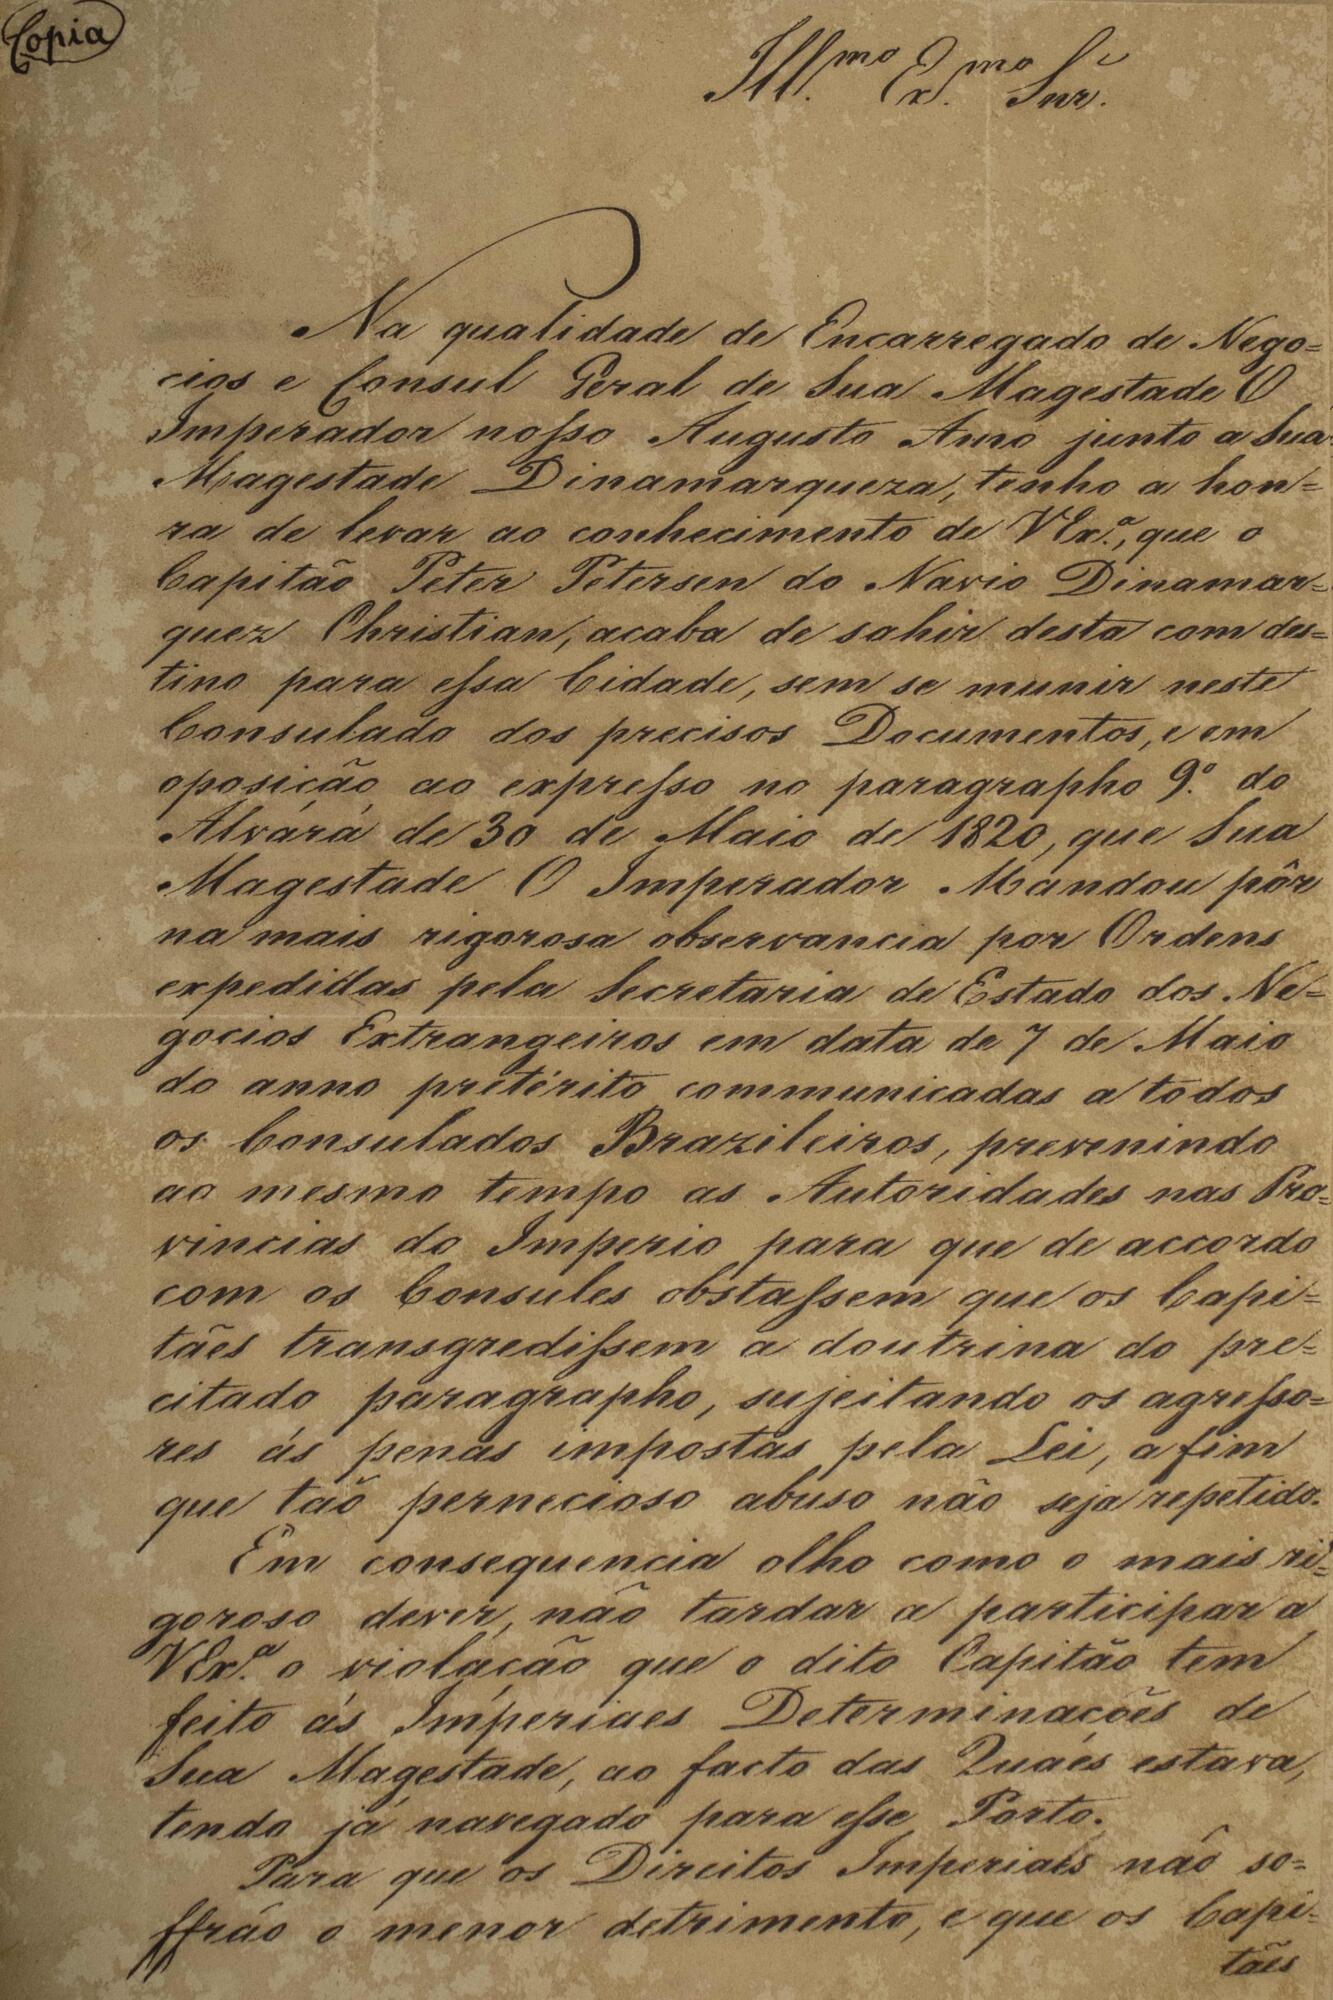 Copia
Ill.mo Ex.mo Snr.
Na qualidade de Encarregado de Nego=
cios e Consul Geral de Sua Magestade O
Imperador nosso Augusto Amo junto a Sua
Magestade Dinamarqueza, tenho a hon=
ra de levar ao conhecimento de VEx.ª, que o
Capitão Peter Petersen do Navio Dinamar=
quez Christian, acaba de sahir desta com des=
tino para essa Cidade, sem se munir neste
Consulado dos precisos Documentos, e em
oposição ao expresso no paragrapho 9.º do
Alvará de 30 de Maio de 1820, que Sua
Magestade O Imperador Mandou pôr
na mais rigorosa observancia por Ordens
expedidas pela Secretaria de Estado dos Ne=
gocios Extrangeiros em data de 7 de Maio
do anno pretérito communicadas a todos
os Consulados Brazileiros, prevenindo
ao mesmo tempo as Autoridades nas Pro=
vincias do Imperio para que de accordo
com os Consules obstassem que os Capi=
tães transgredissem a doutrina do pre=
citado paragrapho, sujeitando os agresso=
res ás penas impostas pela Lei, a fim
que tão pernecioso abuso não seja repetido.
Em consequencia olho como o mais ri=
goroso dever, não tardar a participar a
VEx.ª o violação que o dito Capitão tem
feito ás Impériaes Determinações de
Sua Magestade, ao facto das Quaés estava,
tendo já navegado para esse Porto.
Para que os Direitos Imperiaés não so=
ffrão o menor detrimento, e que os Capi=
tães